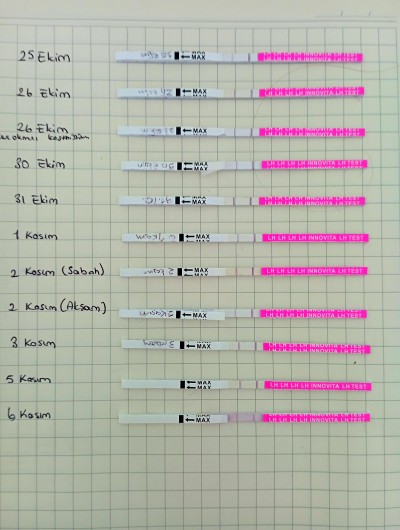 25 Ekim
MAX
LH LH LH LH INNOVITA LH TEST
26 Ekim
MAX
LH LH LH LH INNOVITA LH TEST
26 Ekim
MAX
LH LH LH LH INNOVITA LH TEST
30 Ekim
MAX
LH LH LH LH INNOVITA LH TEST
31 Ekim
MAX
LH LH LH LH INNOVITA LH TEST
1 Kasım
MAX
LH LH LH LH INNOVITA LH TEST
2 Kasım (Sabah)
MAX
LH LH LH LH INNOVITA LH TEST
2 Kasım (Akşam)
MAX
LH LH LH LH INNOVITA LH TEST
3 Kasım
MAX
LH LH LH LH INNOVITA LH TEST
5 Kasım
MAX
LH LH LH LH INNOVITA LH TEST
6 Kasım
MAX
LH LH LH LH INNOVITA LH TEST